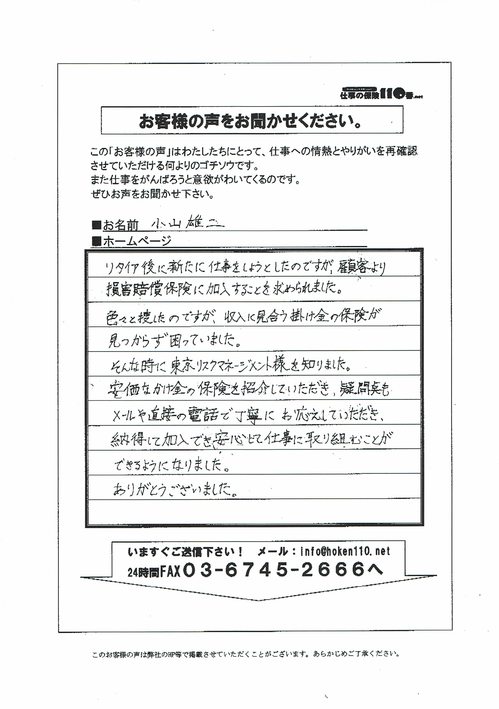 仕事の保険110番.net
お客様の声をお聞かせください。
この「お客様の声」はわたしたちにとって、仕事への情熱とやりがいを再確認
させていただける何よりのゴチソウです。
また仕事をがんばろうと意欲がわいてくるのです。
ぜひお声をお聞かせ下さい。
■お名前 小山雄二
■ホームページ
リタイア後に新たに仕事をしようとしたのですが、顧客より
損害賠償保険に加入することを求められました。
色々と捜したのですが、収入に見合う掛け金の保険が
見つからず困っていました。
そんな時に東京リスクマネージメント様を知りました。
安価なかけ金の保険を紹介していただき、疑問点も
メールや直接の電話で丁寧にお応えしていただき、
納得して加入でき安心して仕事に取り組むことが
できるようになりました。
ありがとうございました。
いますぐご送信下さい! メール:info@hoken110.net
24時間FAX03-6745-2666へ
このお客様の声は弊社のHP等で掲載させていただくことがございます。あらかじめご了承ください。